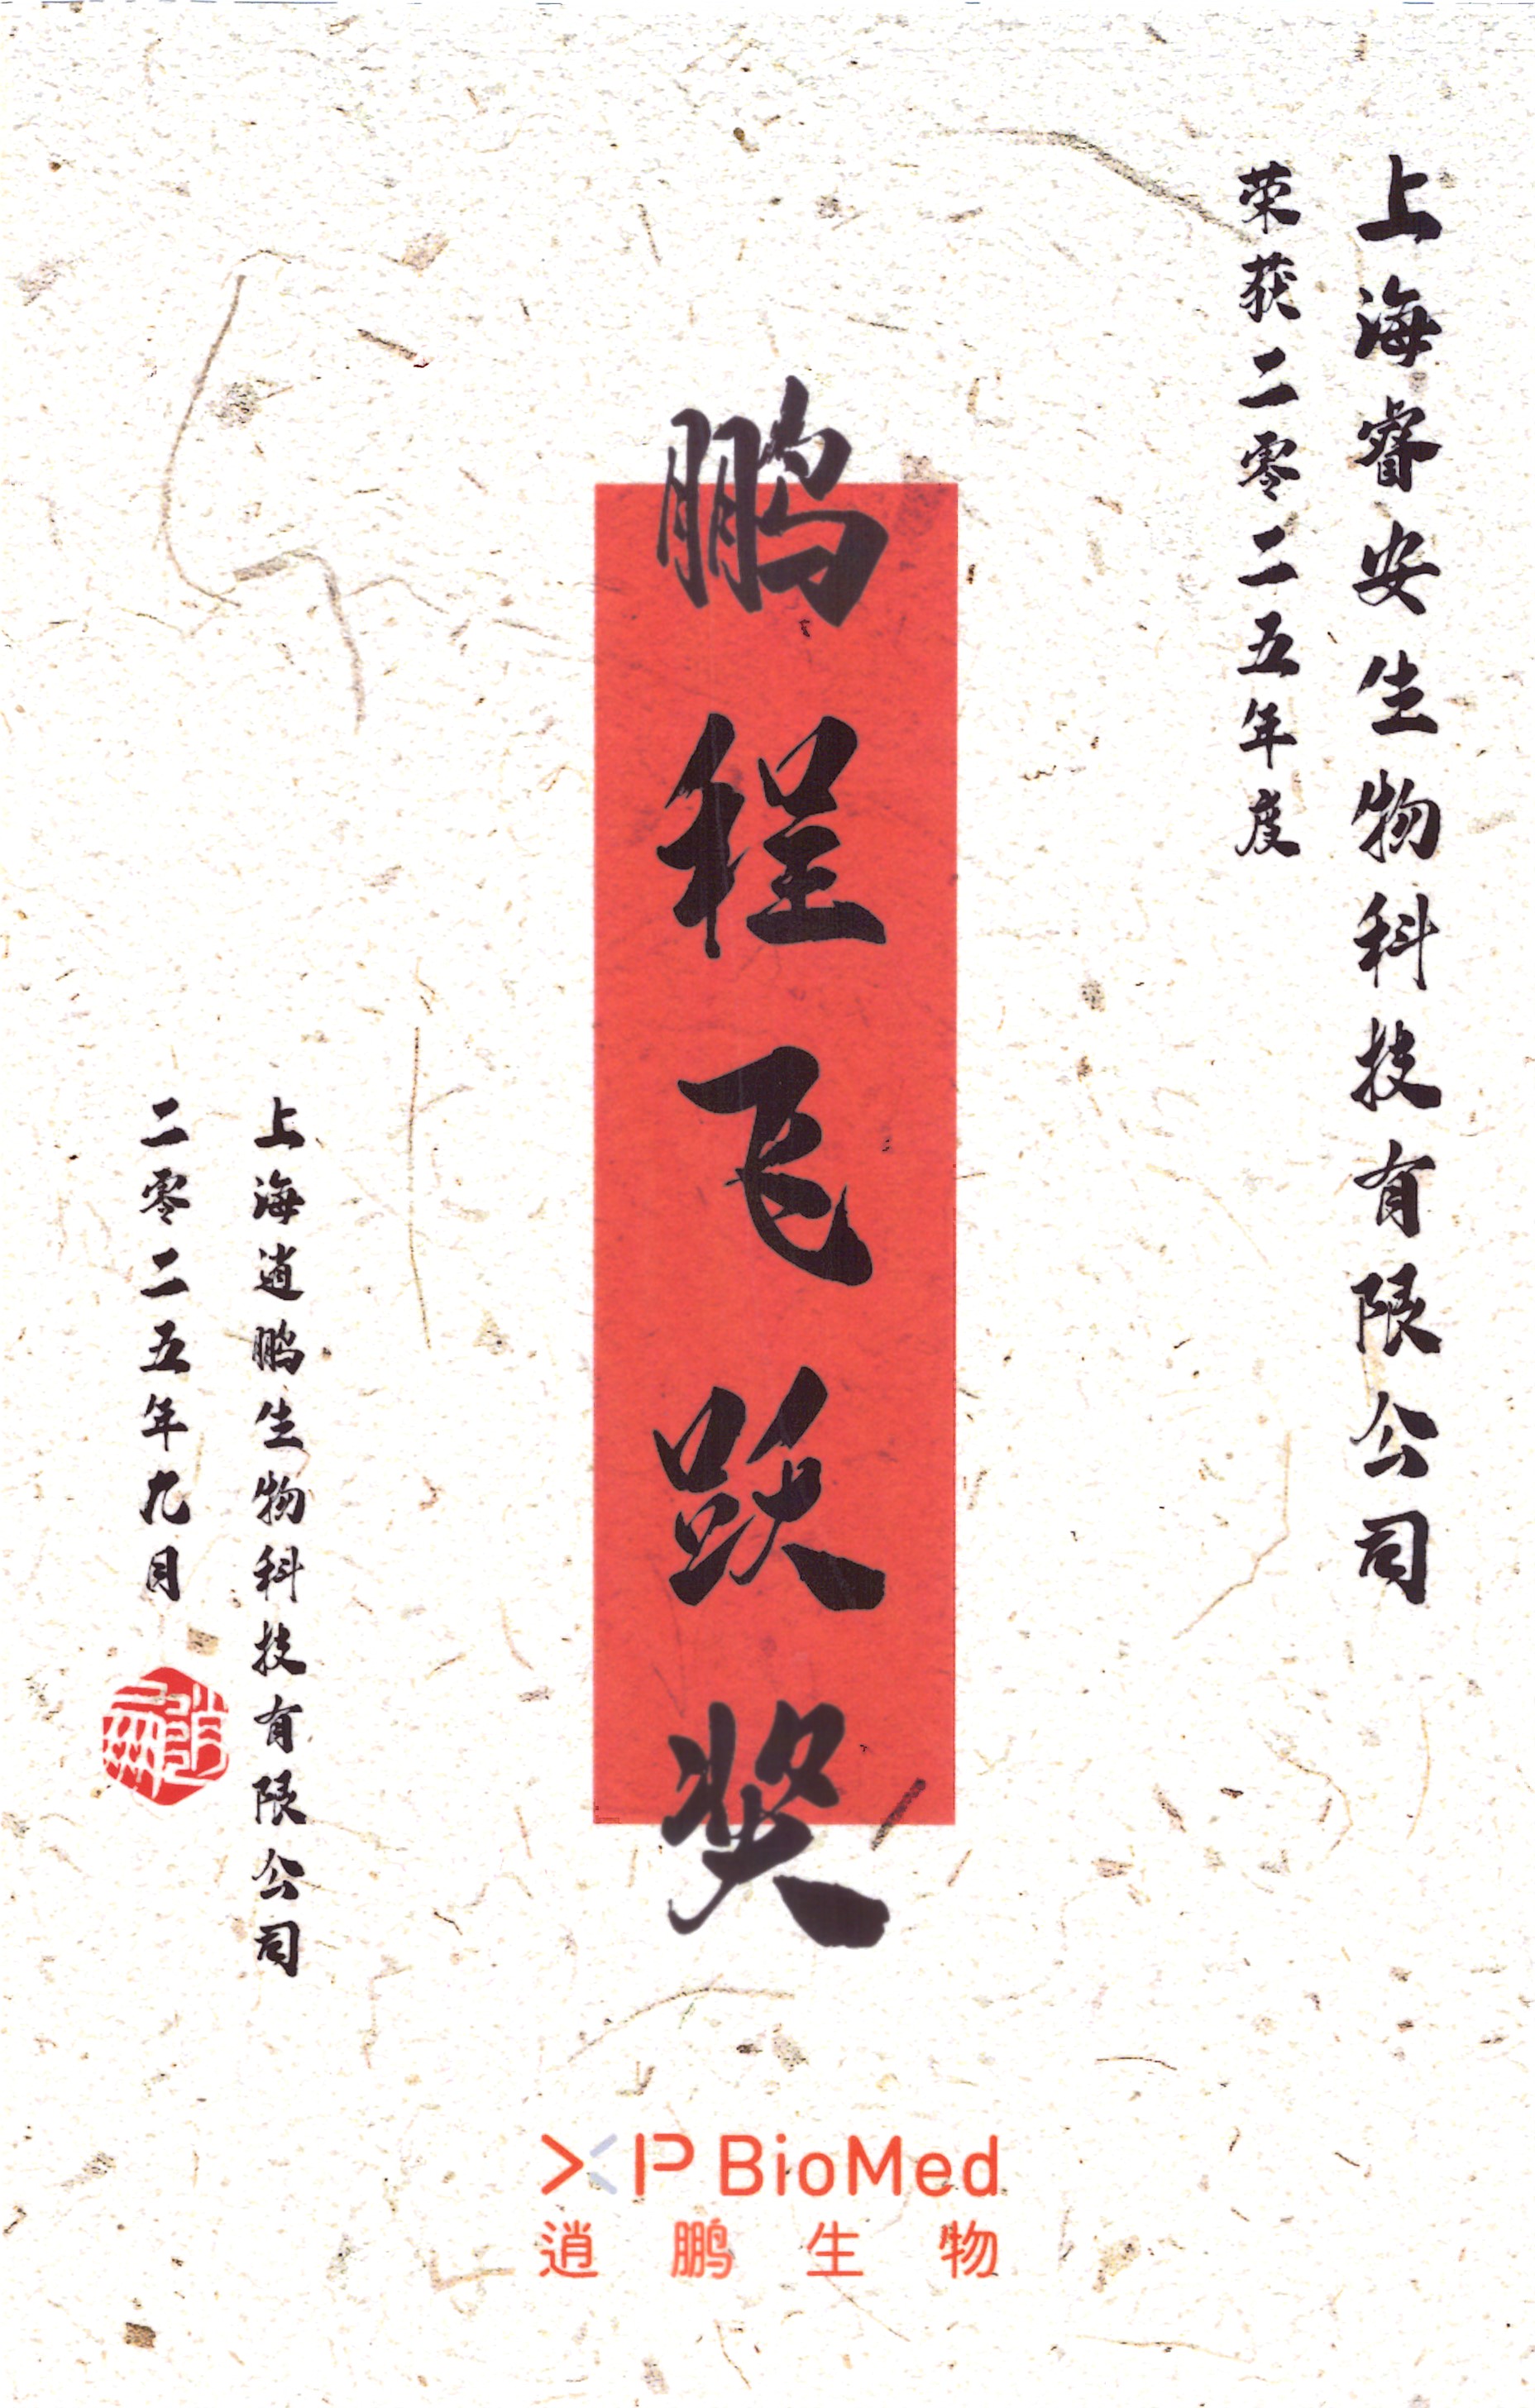 上海睿安生物科技有限公司
荣获二零二五年度
鹏程飞跃奖
上海逍鹏生物科技有限公司
二零二五年九月
XP BioMed
逍鹏生物